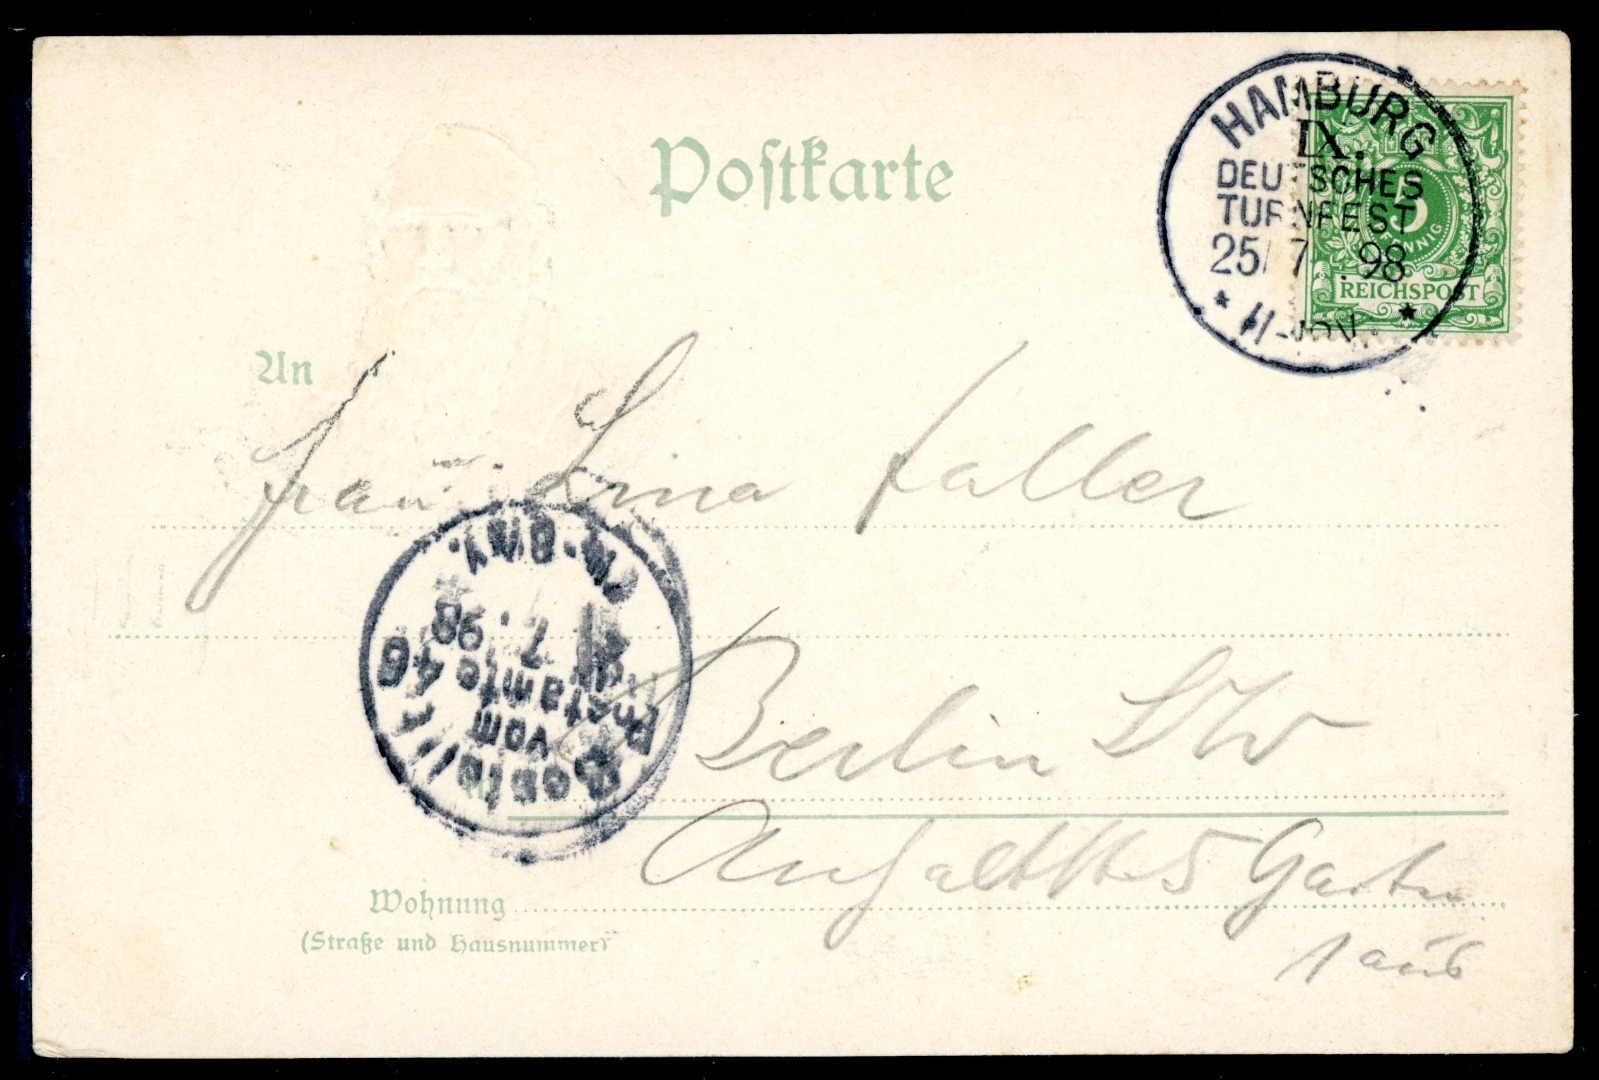 Postkarte
HAMBURG
IX.
DEUTSCHES
TURNFEST
25/7 .98
* 11-12V. *
5
PFENNIG
REICHSPOST
An
Frau Lina Faller
Berlin SW
Anhaltstr. 5 Garten
haus
in
Bestellt
vom
Postamte 46
7. 98
Wohnung
(Straße und Hausnummer)